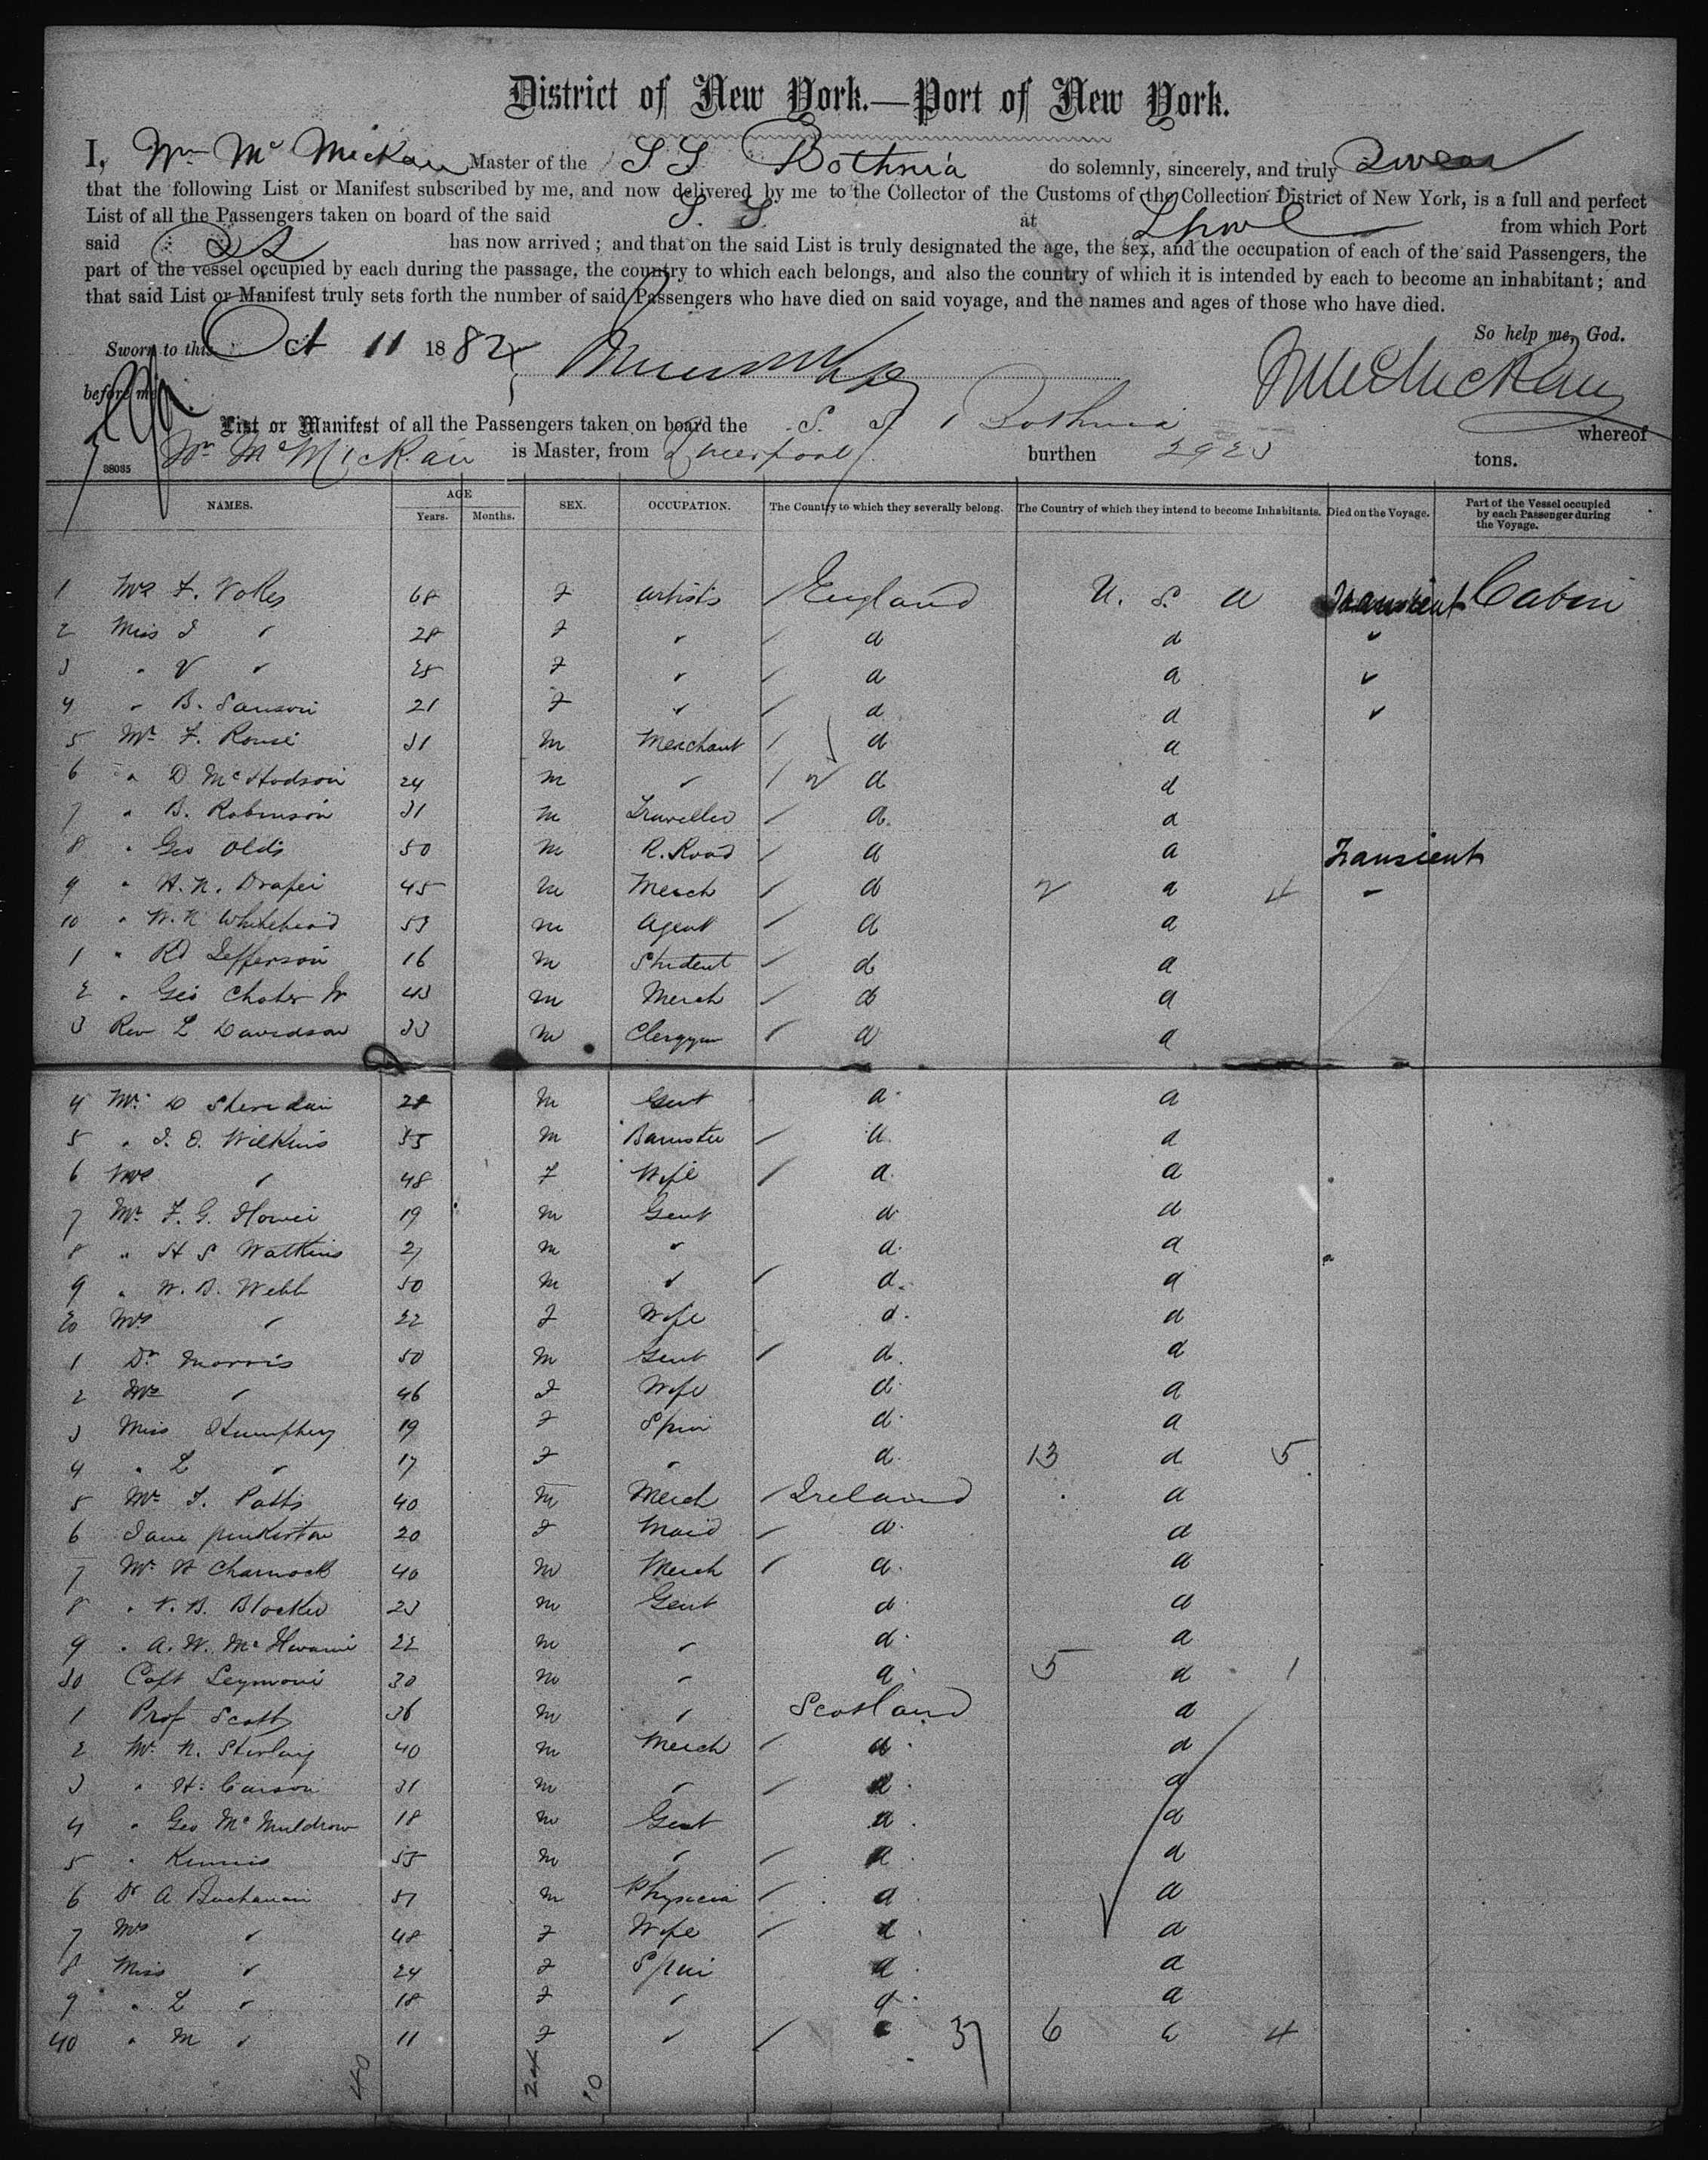 District of New York.—Port of New York.
I, Wm McMickan Master of the S S Bothnia do solemnly, sincerely, and truly Swear
that the following List or Manifest subscribed by me, and now delivered by me to the Collector of the Customs of the Collection District of New York, is a full and perfect
List of all the Passengers taken on board of the said S. S. at Lpool from which Port
said SS has now arrived; and that on the said List is truly designated the age, the sex, and the occupation of each of the said Passengers, the
part of the vessel occupied by each during the passage, the country to which each belongs, and also the country of which it is intended by each to become an inhabitant; and
that said List or Manifest truly sets forth the number of said Passengers who have died on said voyage, and the names and ages of those who have died.
So help me, God.
Sworn to this Oct 11 1882
before me
WMcMickan
List or Manifest of all the Passengers taken on board the S. S. Bothnia whereof
Wm McMickan is Master, from Liverpool burthen 2923 tons.
38035
NAMES. AGE Years. Months. SEX. OCCUPATION. The Country to which they severally belong. The Country of which they intend to become Inhabitants. Died on the Voyage. Part of the Vessel occupied by each Passenger during the Voyage.
1 Mrs F. Vokes 68 F artists England U. S. a Transient Cabin
2 Miss J " 28 F " d d "
3 " V " 25 F " d d "
4 " B. Sanson 21 F " d d "
5 Mr F. Rouse 31 M Merchant d d
6 " D McHodson 24 m " 2 d d
7 " B. Robinson 31 m Traveller d d
8 " Geo Olds 50 m R. Road d d Transient
9 " H. N. Draper 45 m Merch d 2 d 4 "
10 " W. N Whitehead 53 m Agent d d
1 " Rd Jefferson 16 m Student d d
2 " Geo Chater Jr 43 m Merch d d
3 Rev L Davidson 33 m Clergym d d
4 Mr D Sheridan 28 m Gent d d
5 " J. O. Wilkins 55 m Barrister d d
6 Mrs " 48 F Wife d d
7 Mr F. G. Howe 19 m Gent d d
8 " H S Watkins 27 m " d d
9 " W. B. Webb 50 m " d d
20 Mrs " 22 F Wife d d
1 Dr Morris 50 m Gent d d
2 Mrs " 46 F Wife d d
3 Miss Humphery 19 F Spin d d
4 " L " 17 F " d 13 d 5
5 Mr J. Potts 40 m Merch Ireland d
6 Jane Pinkerton 20 F Maid d d
7 Mr H Charnock 40 m Merch d d
8 " V. B. Blocker 23 m Gent d d
9 " A. W. 22 m " d d
30 Capt Seymour 30 m " d 5 d 1
1 Prof Scott 36 m " Scotland d
2 Mr N. Sterling 40 m Merch d d
3 " H. Carson 31 m " d d
4 " Geo McMuldrow 18 m Gent d d
5 " 55 m " d d
6 Dr A Buchanan 51 m Physicia d d
7 Mrs " 48 F Wife d d
8 Miss " 24 F Spin d d
9 " L " 18 F " d d
40 " M " 11 F " 37 6 4
40 24 10